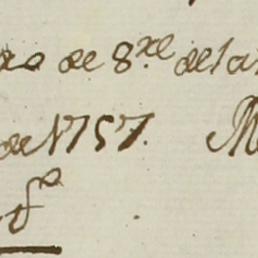 de 8.re de la
de 1757. M
fº